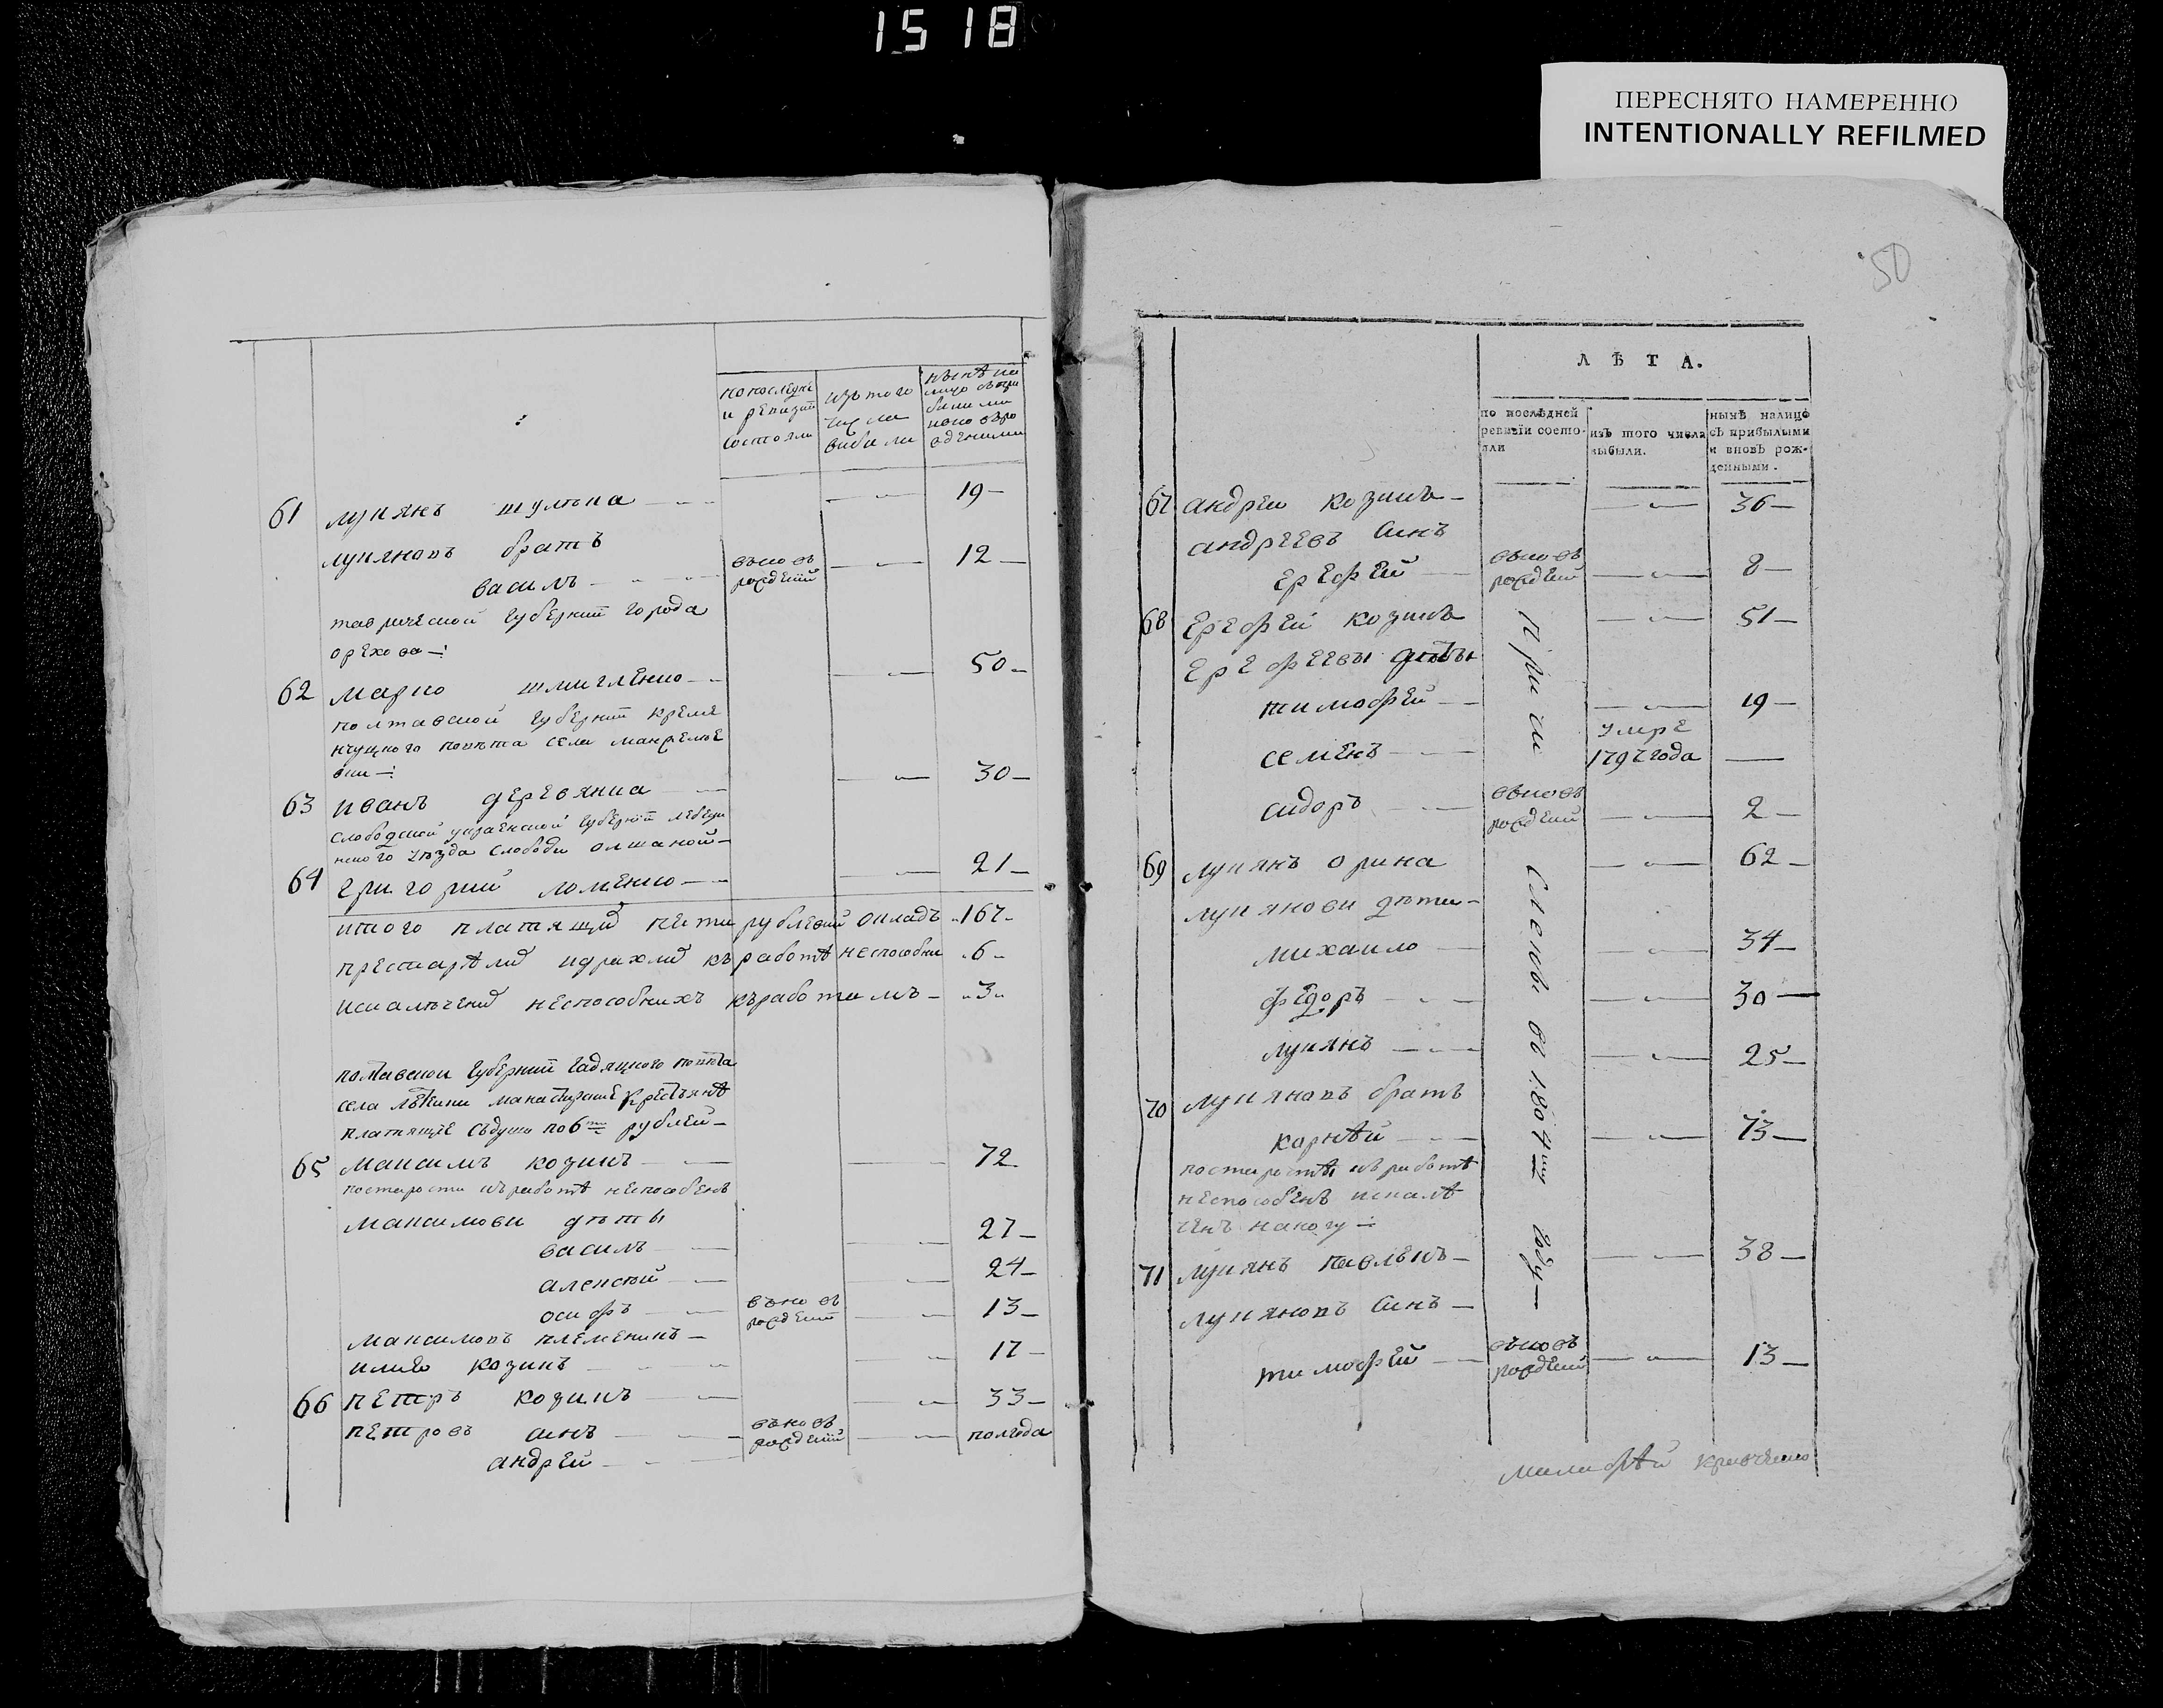 1518
ПЕРЕСНЯТО НАМЕРЕННО
INTENTIONALLY REFILMED
попоследнеи ревизіи состояли
изъ того числа вибили
нынѣ на лицо съ прибилими ивновъ рожденими
61 лукянъ шулѣка — 19 —
лукяновъ братъ
василь — вьновь рождений — 12 —
таврической губерніи города
орехова —:
62 марко шмигленко — 50 —
полтавской губерніи креме
нчуцкого повѣта села
вки —:
63 иванъ деревянка — 30 —
слободской украенской губерніи лебеди
нского уѣзда слободи олшаной —
64 григорий ломенко — 21 —
итого платящих пети рублевий окладъ 167
престарѣлих идрахлих къ работѣ неспособни 6
искалѣчених неспособнихъ къработимъ — 3
полтавской губерніи гадяцкого повѣта
села лѣкини манастирские крестьянѣ
платящіе съдуши по 6ти рублей —
65 максимъ козинъ — 72
постарости къ работѣ неспособенъ
максимови дѣты
василь — 27 —
алексѣй — 24 —
осифъ — вьновь рождений — 13 —
максимовъ племеникъ —
илико козинъ — 17 —
66 петръ козинъ — 33 —
петровъ синъ — вьновь рождений — полгода
андрей —
50
ЛѢТА.
по послѣдней ревизіи состояли
изъ того числа выбыли.
нынѣ налицо съ прибылыми и вновь рожденными.
67 андреи козинъ — 36 —
андреевъ синъ
ерефей — вьновь рождений — 8 —
68 ерефей козинъ — 51 —
ерефеевы дѣты
тимофей — 19 —
семенъ — умре 1797 года —
сидоръ — вьновь рождений — 2 —
69 лукянъ орина — 62 —
лукянови дѣти —
михаило — 34 —
федоръ — 30 —
лукянъ — 25 —
70 лукяновъ братъ
корнѣй — 73 —
постаростѣ къ работѣ
неспособенъ искалѣ
ченъ наногу —:
71 лукянъ павлѣкъ — 38 —
лукяновъ синъ —
тимофей — вьновь рождений — 13 —
Причисленъ въ 1804мъ году —
кривченко